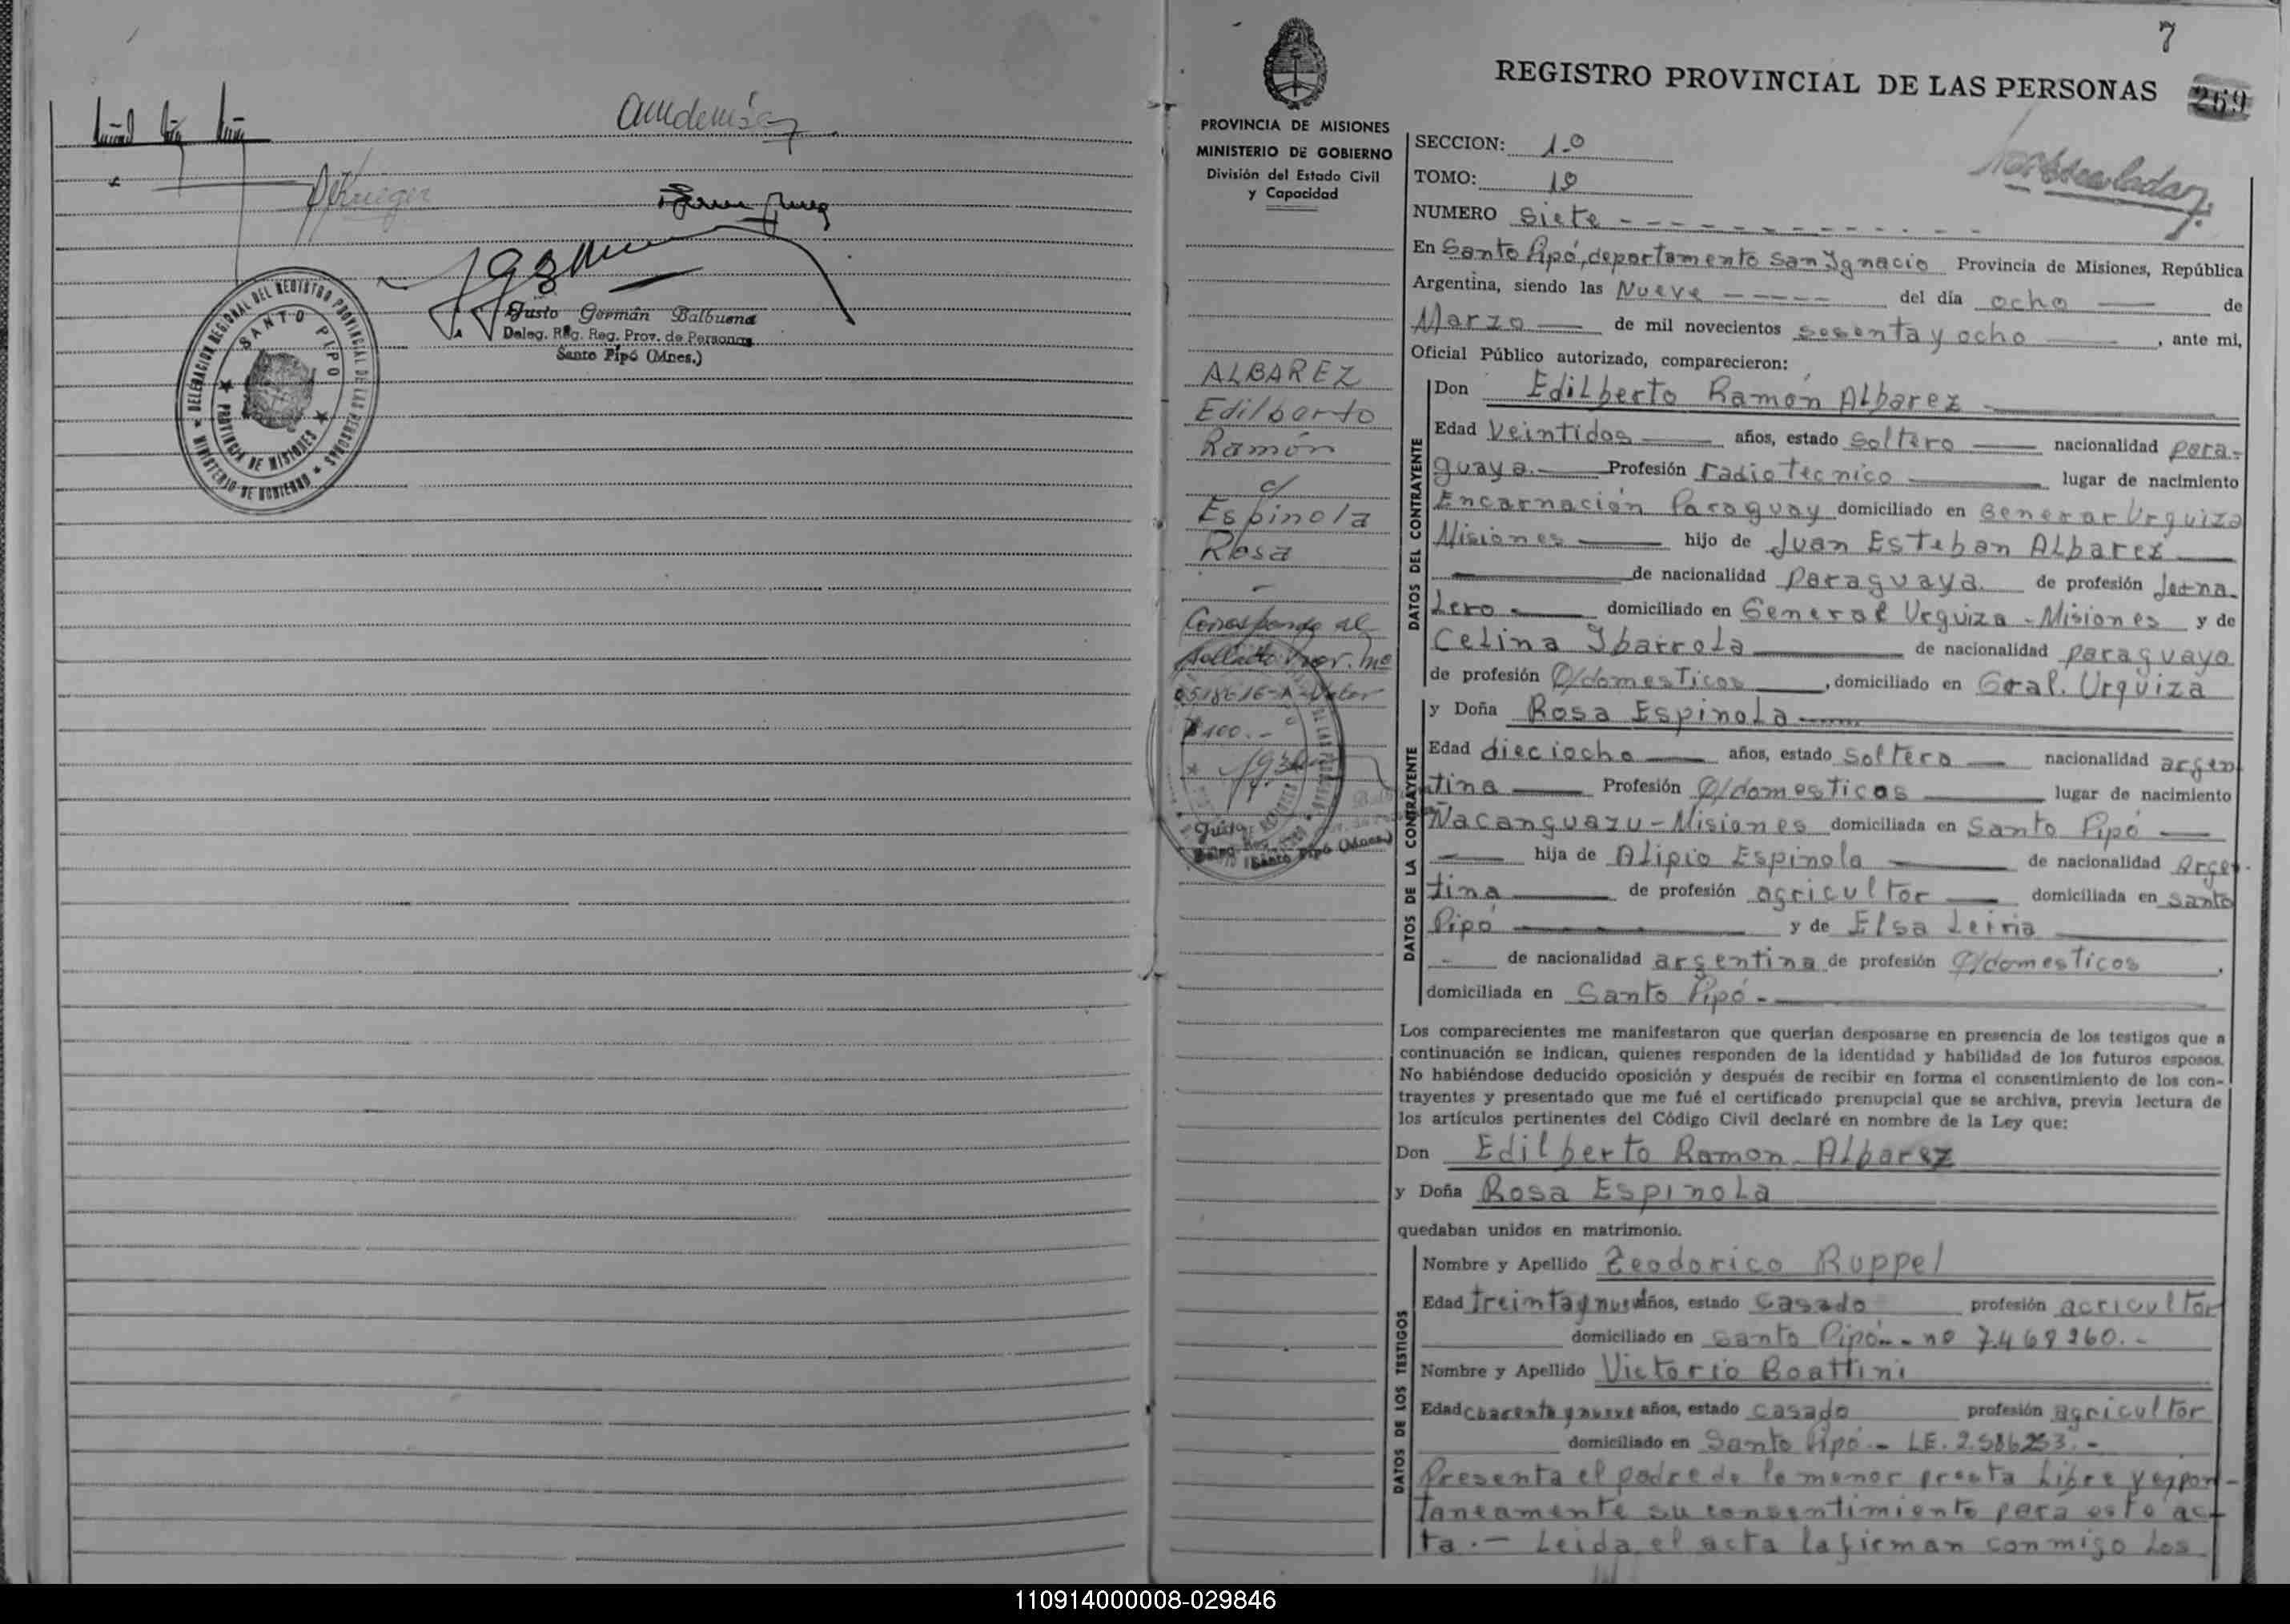 Justo Germán Balbuena
Deleg. Reg. Reg. Prov. de Personas
Santo Pipó (Mnes.)
DELEGACION REGIONAL DEL REGISTRO PROVINCIAL DE LAS PERSONAS
MINISTERIO DE GOBIERNO
SANTO PIPO
PROVINCIA DE MISIONES
7
REGISTRO PROVINCIAL DE LAS PERSONAS
269
PROVINCIA DE MISIONES
MINISTERIO DE GOBIERNO
División del Estado Civil
y Capacidad
ALBAREZ
Edilberto
Ramón
c/
Espinola
Rosa
Corresponde al
$100.-
SECCION: 1º
TOMO: 1º
NUMERO Siete
En Santo Pipó, departamento San Ygnacio Provincia de Misiones, República
Argentina, siendo las Nueve del día ocho de
Marzo de mil novecientos sesenta y ocho, ante mi,
Oficial Público autorizado, comparecieron:
DATOS DEL CONTRAYENTE
Don Edilberto Ramón Albarez
Edad Veintidos años, estado Soltero nacionalidad para-
guaya.- Profesión radiotecnico lugar de nacimiento
Encarnación Paraguay domiciliado en General Urquiza
Misiones hijo de Juan Esteban Albarez
de nacionalidad Paraguaya de profesión Jorna-
lero domiciliado en General Urquiza - Misiones y de
Celina Ybarrola de nacionalidad paraguaya
de profesión Q/domesticos, domiciliado en Gral. Urquiza
DATOS DE LA CONTRAYENTE
y Doña Rosa Espinola
Edad dieciocho años, estado Soltera nacionalidad argen
tina Profesión Q/domesticos lugar de nacimiento
Ñacanguazu - Misiones domiciliada en Santo Pipó
hija de Alipio Espinola de nacionalidad Argen-
tina de profesión agricultor domiciliada en Santo
Pipó y de Elsa Leiria
de nacionalidad argentina de profesión Q/domesticos,
domiciliada en Santo Pipó.-
Los comparecientes me manifestaron que querían desposarse en presencia de los testigos que a
continuación se indican, quienes responden de la identidad y habilidad de los futuros esposos.
No habiéndose deducido oposición y después de recibir en forma el consentimiento de los con-
trayentes y presentado que me fué el certificado prenupcial que se archiva, previa lectura de
los artículos pertinentes del Código Civil declaré en nombre de la Ley que:
Don Edilberto Ramon Albarez
y Doña Rosa Espinola
quedaban unidos en matrimonio.
DATOS DE LOS TESTIGOS
Nombre y Apellido Teodorico Ruppel
Edad treinta y nueve años, estado Casado profesión acricultor
domiciliado en Santo Pipó.- nº 7.468960.-
Nombre y Apellido Victorio Boattini
Edad cuarenta y nueve años, estado casado profesión agricultor
domiciliado en Santo Pipó.- LE. 2.586253.-
Presenta el padre de la menor presta libre y espon-
taneamente su consentimiento para este ac-
ta.- Leida el acta la firman conmigo los
110914000008-029846